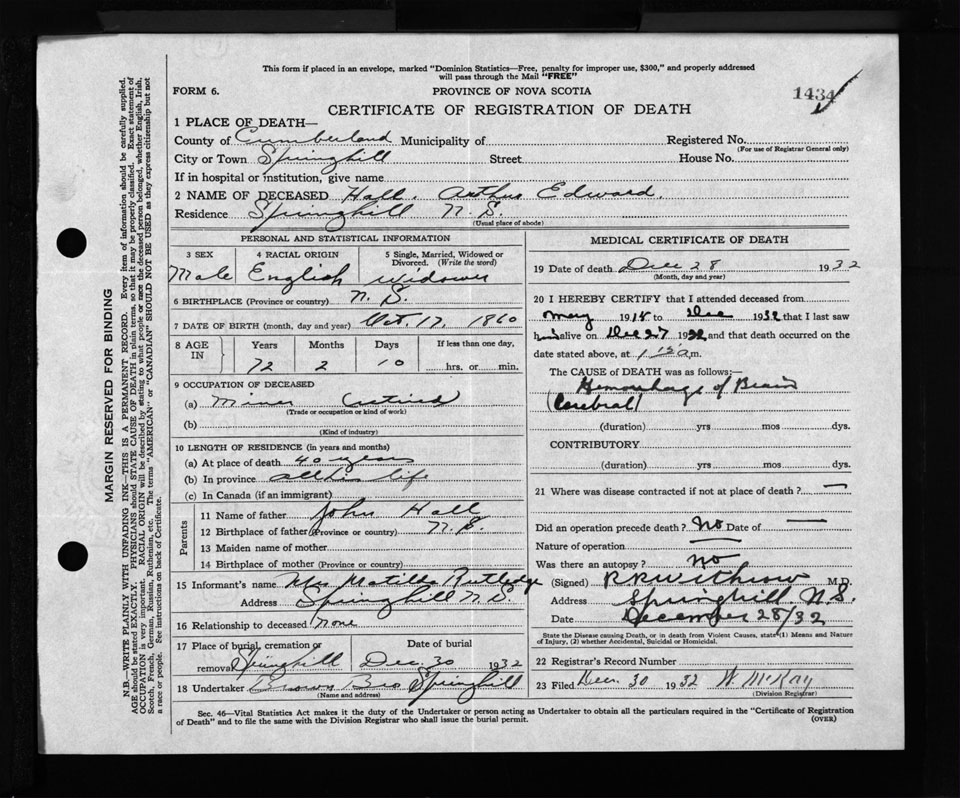 This form if placed in an envelope, marked "Dominion Statistics—Free, penalty for improper use, $300," and properly addressed
will pass through the Mail "FREE"
FORM 6.
PROVINCE OF NOVA SCOTIA
1434
CERTIFICATE OF REGISTRATION OF DEATH
1 PLACE OF DEATH—
County of Cumberland Municipality of Registered No.
(For use of Registrar General only)
City or Town Springhill Street House No.
If in hospital or institution, give name
2 NAME OF DECEASED Hall, Arthur Edward.
Residence Springhill N.S.
(Usual place of abode)
PERSONAL AND STATISTICAL INFORMATION
3 SEX 4 RACIAL ORIGIN 5 Single, Married, Widowed or Divorced. (Write the word)
Male English Widower
6 BIRTHPLACE (Province or country) N.S.
7 DATE OF BIRTH (month, day and year) Oct. 17, 1860
8 AGE IN Years Months Days If less than one day,
72 2 10 hrs. or min.
9 OCCUPATION OF DECEASED
(a) Miner (retired)
(Trade or occupation or kind of work)
(b)
(Kind of industry)
10 LENGTH OF RESIDENCE (in years and months)
(a) At place of death 40 years
(b) In province all his life
(c) In Canada (if an immigrant)
Parents
11 Name of father John Hall
12 Birthplace of father (Province or country) N.S.
13 Maiden name of mother
14 Birthplace of mother (Province or country)
15 Informant's name Mrs Matilda Rutledge
Address Springhill N.S.
16 Relationship to deceased None
17 Place of burial, cremation or removal Springhill Date of burial Dec. 30 1932
18 Undertaker Brown Bro Springhill
(Name and address)
MEDICAL CERTIFICATE OF DEATH
19 Date of death Dec 28 1932
(Month, day and year)
20 I HEREBY CERTIFY that I attended deceased from
May 19 to Dec 1932 that I last saw
him alive on Dec 27 1932 and that death occurred on the
date stated above, at m.
The CAUSE of DEATH was as follows:—
Hemorrhage of Brain
(Cerebral)
(duration) yrs mos dys.
CONTRIBUTORY
(duration) yrs mos dys.
21 Where was disease contracted if not at place of death? —
Did an operation precede death? No Date of —
Nature of operation —
Was there an autopsy? No
(Signed) R R Withrow M.D.
Address Springhill N.S.
Date December 28/32
State the Disease causing Death, or in death from Violent Causes, state (1) Means and Nature
of Injury, (2) whether Accidental, Suicidal or Homicidal.
22 Registrar's Record Number
23 Filed Dec. 30 1932 W. McKay
(Division Registrar)
Sec. 46—Vital Statistics Act makes it the duty of the Undertaker or person acting as Undertaker to obtain all the particulars required in the "Certificate of Registration
of Death" and to file the same with the Division Registrar who shall issue the burial permit.
(OVER)
MARGIN RESERVED FOR BINDING
N.B.—WRITE PLAINLY WITH UNFADING INK—THIS IS A PERMANENT RECORD. Every item of information should be carefully supplied.
AGE should be stated EXACTLY. PHYSICIANS should STATE CAUSE OF DEATH in plain terms, so that it may be properly classified. Exact statement of
OCCUPATION is very important. RACIAL ORIGIN will be described by stating to what people or race the deceased person belonged, whether English, Irish,
Scotch, French, German, Russian, Ruthenian, etc. The terms "AMERICAN" or "CANADIAN" SHOULD NOT BE USED as they express citizenship but not
a race or people. See instructions on back of Certificate.